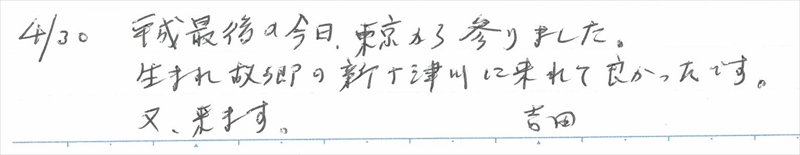 4/30 平成最後の今日、東京から参りました。
生まれ故郷の新十津川に来れて良かったです。
又、来ます。 吉田